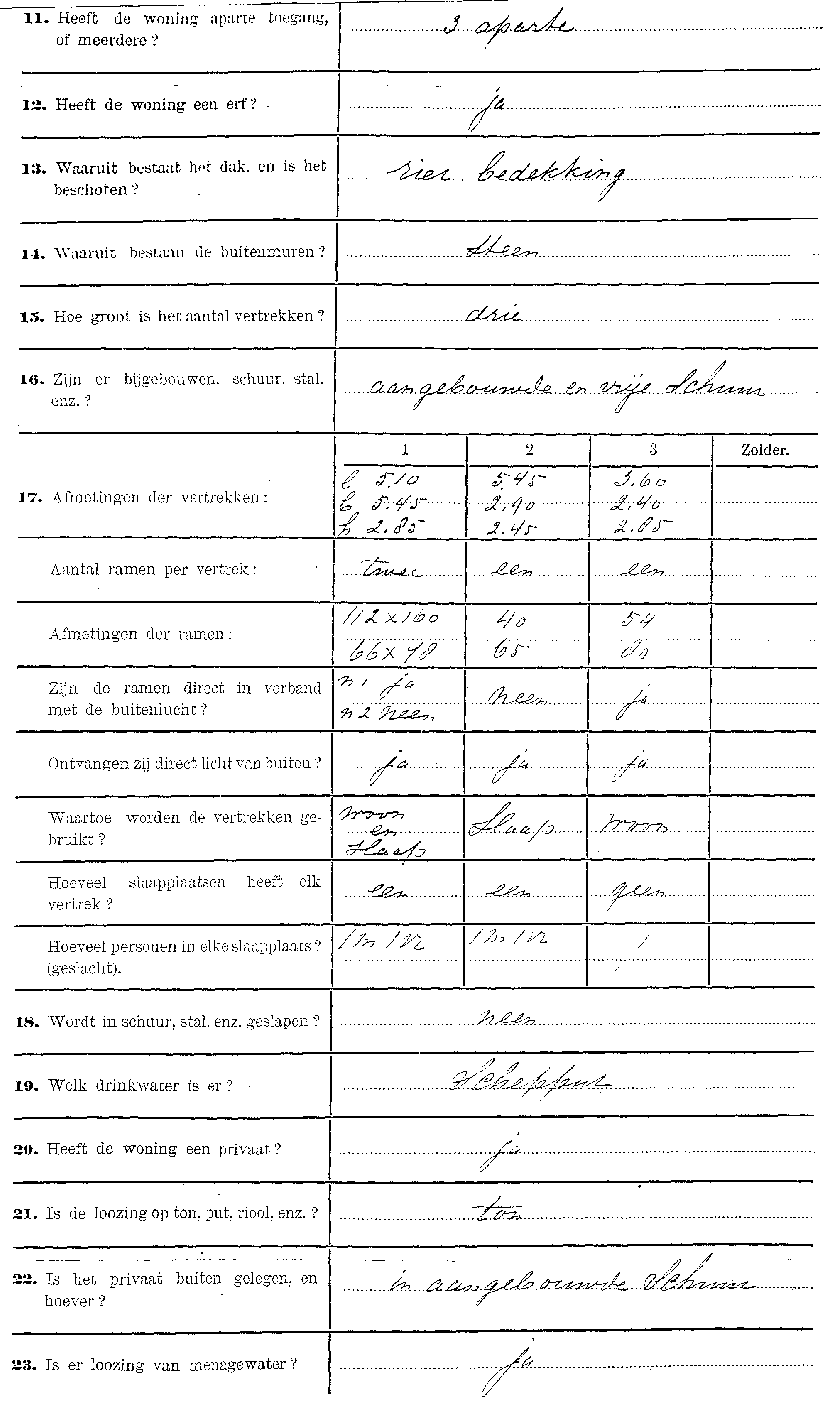 11. Heeft de woning aparte toegang, of meerdere? 3 aparte
12. Heeft de woning een erf? ja
13. Waaruit bestaat het dak, en is het beschoten? riet bedekking
14. Waaruit bestaan de buitenmuren? steen
15. Hoe groot is het aantal vertrekken? drie
16. Zijn er bijgebouwen, schuur, stal, enz.? aangebouwde en vrije Schuur
1 2 3 Zolder.
17. Afmetingen der vertrekken:
l 5.10 5.45 3.60
b 5.45 2.90 2.40
h 2.85 2.45 2.85
Aantal ramen per vertrek: twee een een
Afmetingen der ramen:
112 x 100 40 54
66 x 98 65
Zijn de ramen direct in verband met de buitenlucht?
n 1 ja neen ja
n 2 neen
Ontvangen zij direct licht van buiten? ja ja ja
Waartoe worden de vertrekken gebruikt?
woon en slaap Slaap woon
Hoeveel slaapplaatsen heeft elk vertrek? een een geen
Hoeveel personen in elke slaapplaats? (geslacht). 1 m 1 vr 1 m 1 vr /
18. Wordt in schuur, stal, enz. geslapen? neen
19. Welk drinkwater is er? Schepput
20. Heeft de woning een privaat? ja
21. Is de loozing op ton, put, riool, enz.? ton
22. Is het privaat buiten gelegen, en hoever? in aangebouwde Schuur
23. Is er loozing van menagewater? ja